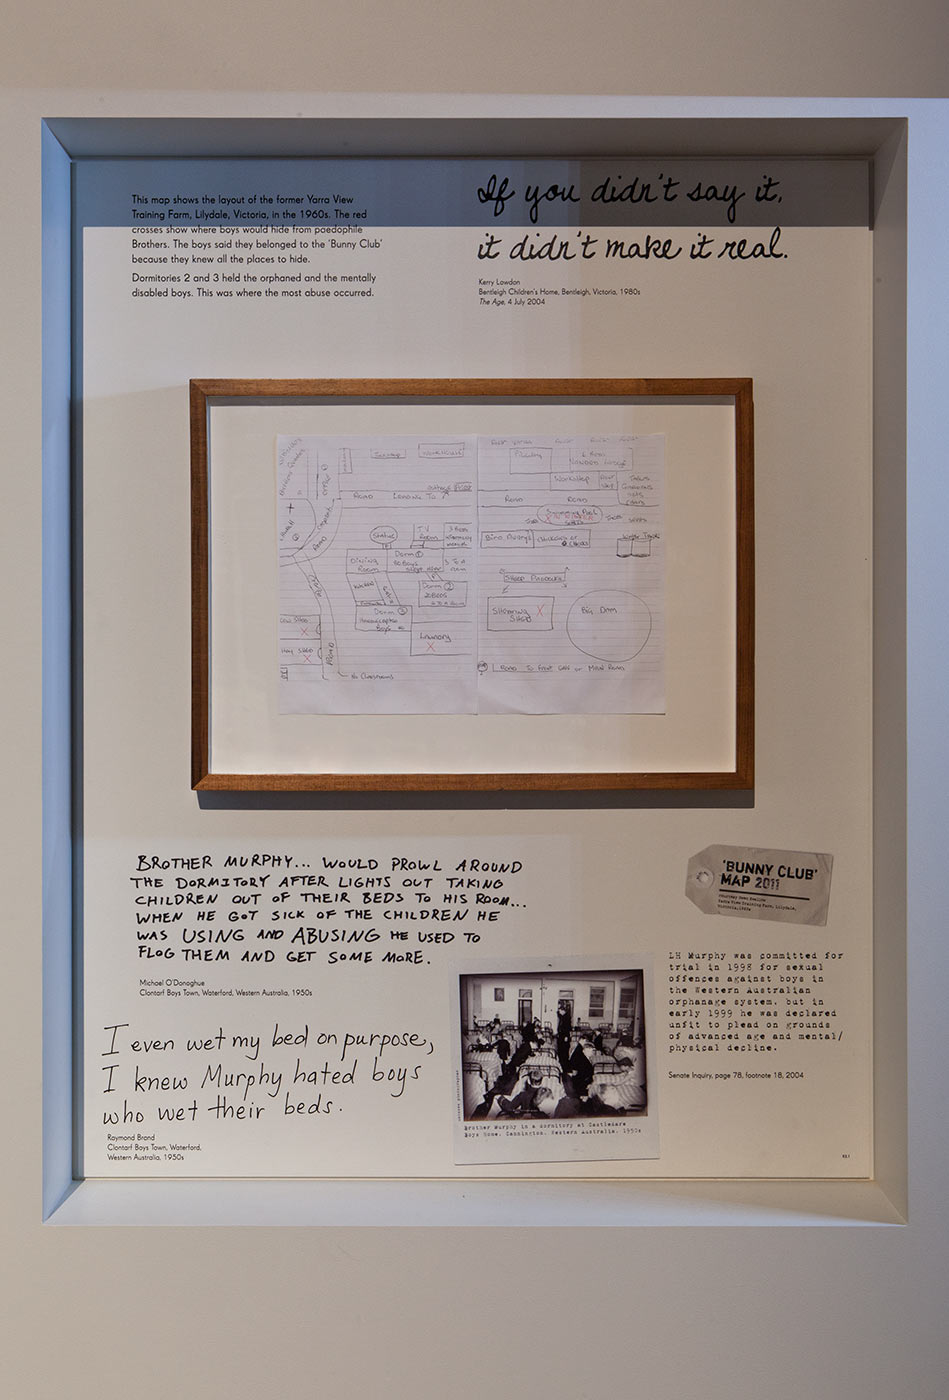 This map shows the layout of the former Yarra View
Training Farm, Lilydale, Victoria, in the 1960s. The red
crosses show where boys would hide from paedophile
Brothers. The boys said they belonged to the 'Bunny Club'
because they knew all the places to hide.
Dormitories 2 and 3 held the orphaned and the mentally
disabled boys. This was where the most abuse occurred.
If you didn't say it,
it didn't make it real.
Kerry Lowdon
Bentleigh Children's Home, Bentleigh, Victoria, 1980s
The Age, 4 July 2004
Piggery
Workshop
Road Leading To
Road
Road
Statue
T.V
Room
Swimming Pool
Seats
Dining
Room
Dorm 1
Dorm 2
20 Beds
Dorm 3
Handicapped
Boys
Laundry
Shearing
Shed
Big Dam
Hay Shed
Road
Road To Front Gate or Main Road
BROTHER MURPHY... WOULD PROWL AROUND
THE DORMITORY AFTER LIGHTS OUT TAKING
CHILDREN OUT OF THEIR BEDS TO HIS ROOM...
WHEN HE GOT SICK OF THE CHILDREN HE
WAS USING AND ABUSING HE USED TO
FLOG THEM AND GET SOME MORE.
Michael O'Donoghue
Clontarf Boys Town, Waterford, Western Australia, 1950s
'BUNNY CLUB'
MAP 2011
I even wet my bed on purpose,
I knew Murphy hated boys
who wet their beds.
Raymond Brand
Clontarf Boys Town, Waterford,
Western Australia, 1950s
Brother Murphy in a dormitory at Castledare
Boys Home, Cannington, Western Australia, 1950s
LH Murphy was committed for
trial in 1998 for sexual
offences against boys in
the Western Australian
orphanage system, but in
early 1999 he was declared
unfit to plead on grounds
of advanced age and mental/
physical decline.
Senate Inquiry, page 78, footnote 18, 2004